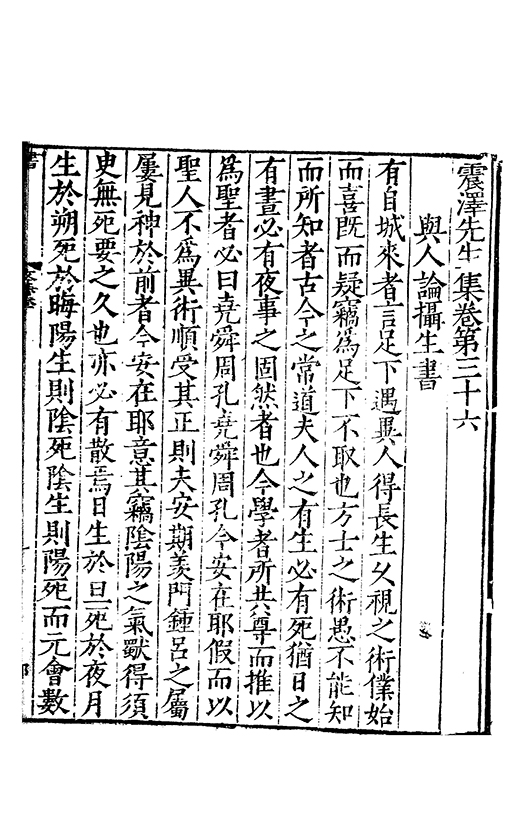 震澤先生集卷第三十六
與人論攝生書
有自城來者言足下遇異人得長生久視之術僕始
而喜既而疑竊為足下不取也方士之術愚不能知
而所知者古今之常道夫人之有生必有死猶日之
有晝必有夜事之固然者也今學者所共尊而推以
為聖者必曰堯舜周孔堯舜周孔今安在耶假而以
聖人不為異術順受其正則夫安期羨門鍾呂之屬
屢見神於前者今安在耶意其竊陰陽之氣獸得須
史無死要之久也亦必有散焉日生於旦死於夜月
生於朔死於晦陽生則陰死陰生則陽死而元會數